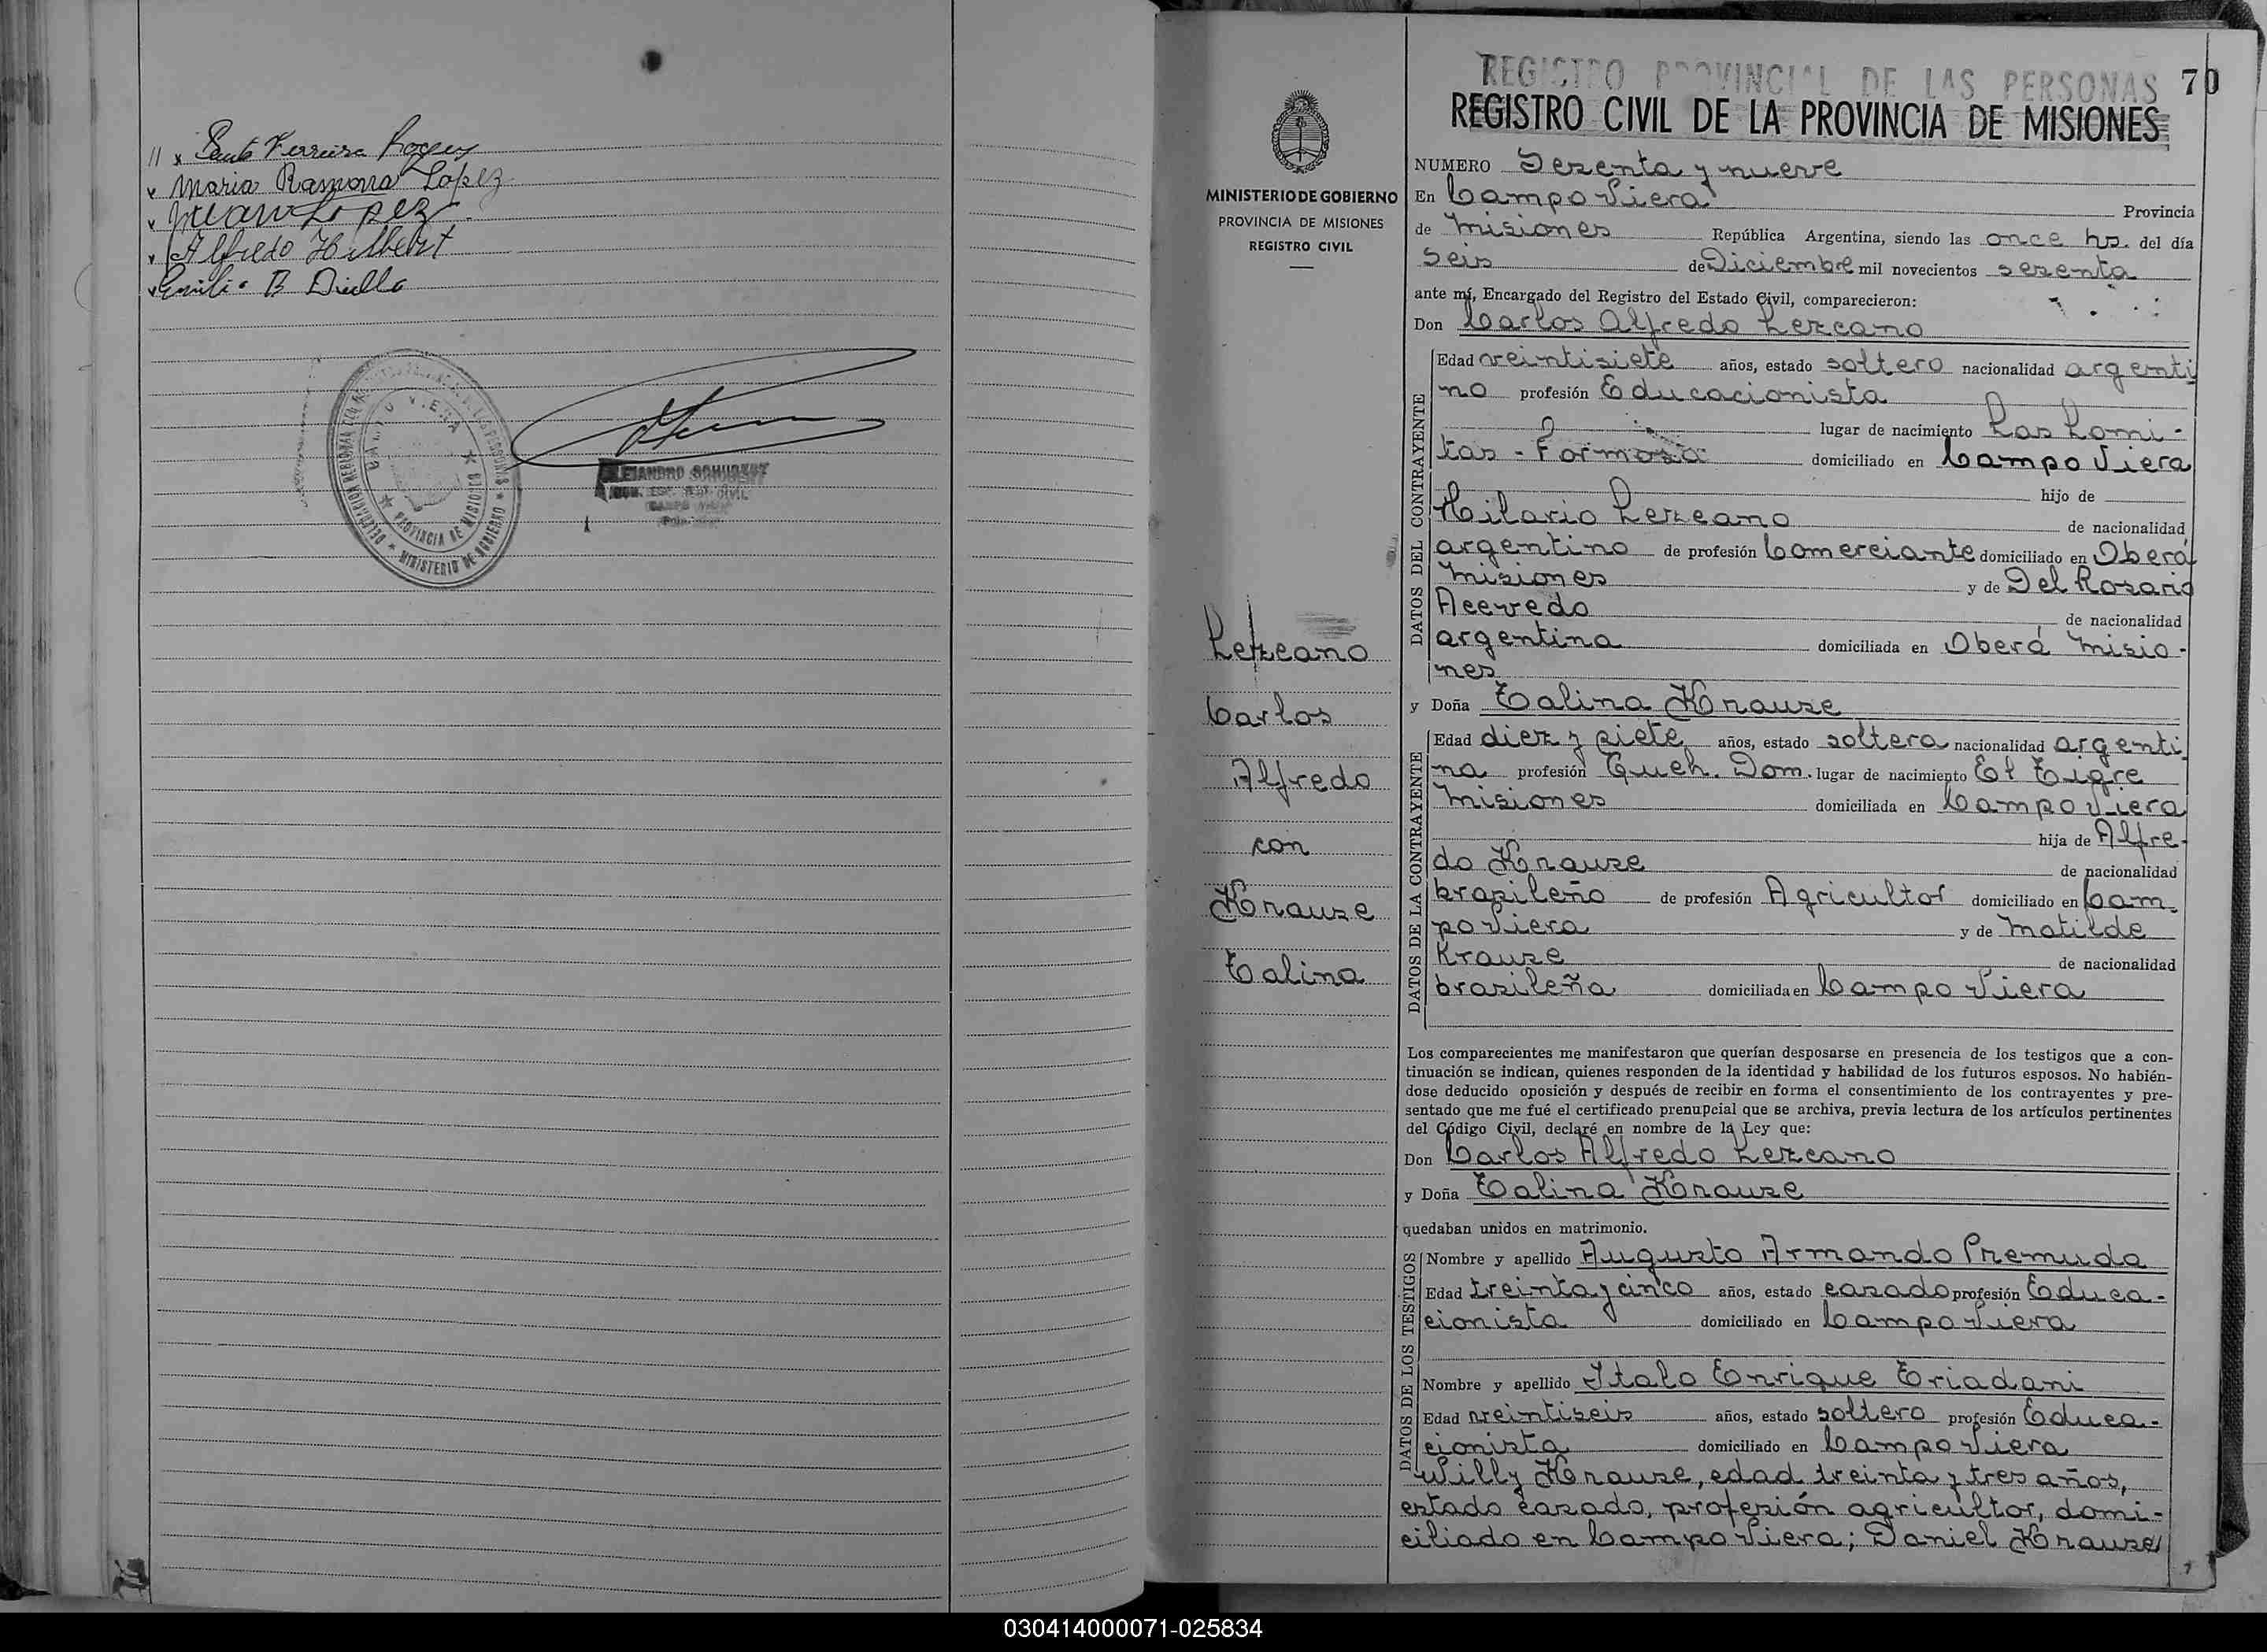 // x Ferreira
x Maria Ramona Lopez
x Juan Lopez
x Alfredo Hilbert
x Emilio B
DELEGACION REGIONAL
CAMPO VIERA
PROVINCIA DE MISIONES
MINISTERIO DE GOBIERNO
ALEJANDRO SCHUBERT
MINISTERIO DE GOBIERNO
PROVINCIA DE MISIONES
REGISTRO CIVIL
Lezcano
Carlos
Alfredo
con
Krause
Talina
REGISTRO PROVINCIAL DE LAS PERSONAS 70
REGISTRO CIVIL DE LA PROVINCIA DE MISIONES
NUMERO Sesenta y nueve
En Campo Viera Provincia
de Misiones República Argentina, siendo las once hs. del día
seis de Diciembre mil novecientos sesenta
ante mí, Encargado del Registro del Estado Civil, comparecieron:
Don Carlos Alfredo Lezcano
DATOS DEL CONTRAYENTE
Edad veintisiete años, estado soltero nacionalidad argenti
no profesión Educacionista
lugar de nacimiento Las Lomi-
tas - Formosa domiciliado en Campo Viera
hijo de
Hilario Lezcano de nacionalidad
argentino de profesión Comerciante domiciliado en Oberá
Misiones y de Del Rosario
Acevedo de nacionalidad
argentina domiciliada en Oberá Misio-
nes
y Doña Talina Krause
DATOS DE LA CONTRAYENTE
Edad diez y siete años, estado soltera nacionalidad argenti
na profesión Queh. Dom. lugar de nacimiento El Tigre
Misiones domiciliada en Campo Viera
hija de Alfre-
do Krause de nacionalidad
brasileño de profesión Agricultor domiciliado en Cam-
po Viera y de Matilde
Krause de nacionalidad
brasileña domiciliada en Campo Viera
Los comparecientes me manifestaron que querían desposarse en presencia de los testigos que a con-
tinuación se indican, quienes responden de la identidad y habilidad de los futuros esposos. No habién-
dose deducido oposición y después de recibir en forma el consentimiento de los contrayentes y pre-
sentado que me fué el certificado prenupcial que se archiva, previa lectura de los artículos pertinentes
del Código Civil, declaré en nombre de la Ley que:
Don Carlos Alfredo Lezcano
y Doña Talina Krause
quedaban unidos en matrimonio.
DATOS DE LOS TESTIGOS
Nombre y apellido Augusto Armando Premuda
Edad treinta y cinco años, estado casado profesión Educa-
cionista domiciliado en Campo Viera
Nombre y apellido Italo Enrique Triadani
Edad veintiseis años, estado soltero profesión Educa-
cionista domiciliado en Campo Viera
Willy Krause, edad treinta y tres años,
estado casado, profesión agricultor, domi-
ciliado en Campo Viera; Daniel Krause
030414000071-025834